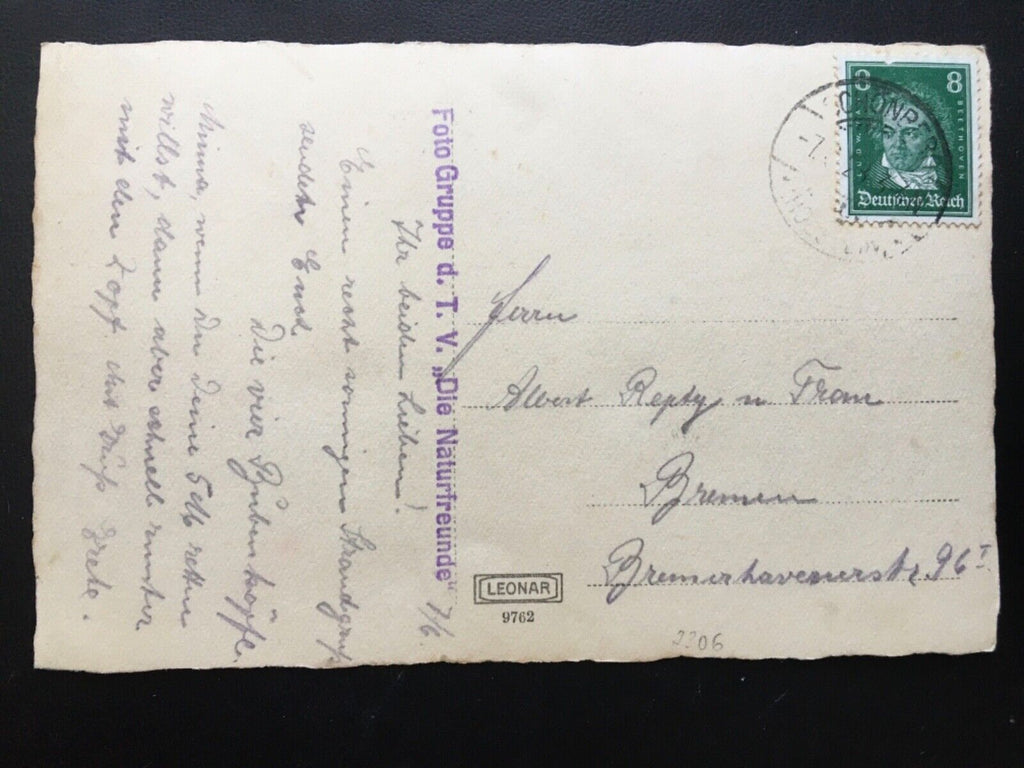 Ihr beiden Lieben! 7/6.
Einen recht sonnigen Strandgruß
sendet Euch
Die vier Bubenköpfe.
Minna, wenn Du Deine 5 retten
willst, dann aber schnell runter
mit dem Zopf. Gruß Grete.
Foto Gruppe d. T. V. „Die Naturfreunde"
8 8
BEETHOVEN
Deutsches Reich
Herrn
Albert Repty u Frau
Bremen
Bremerhavenerstr. 96 I
LEONAR
9762
2206